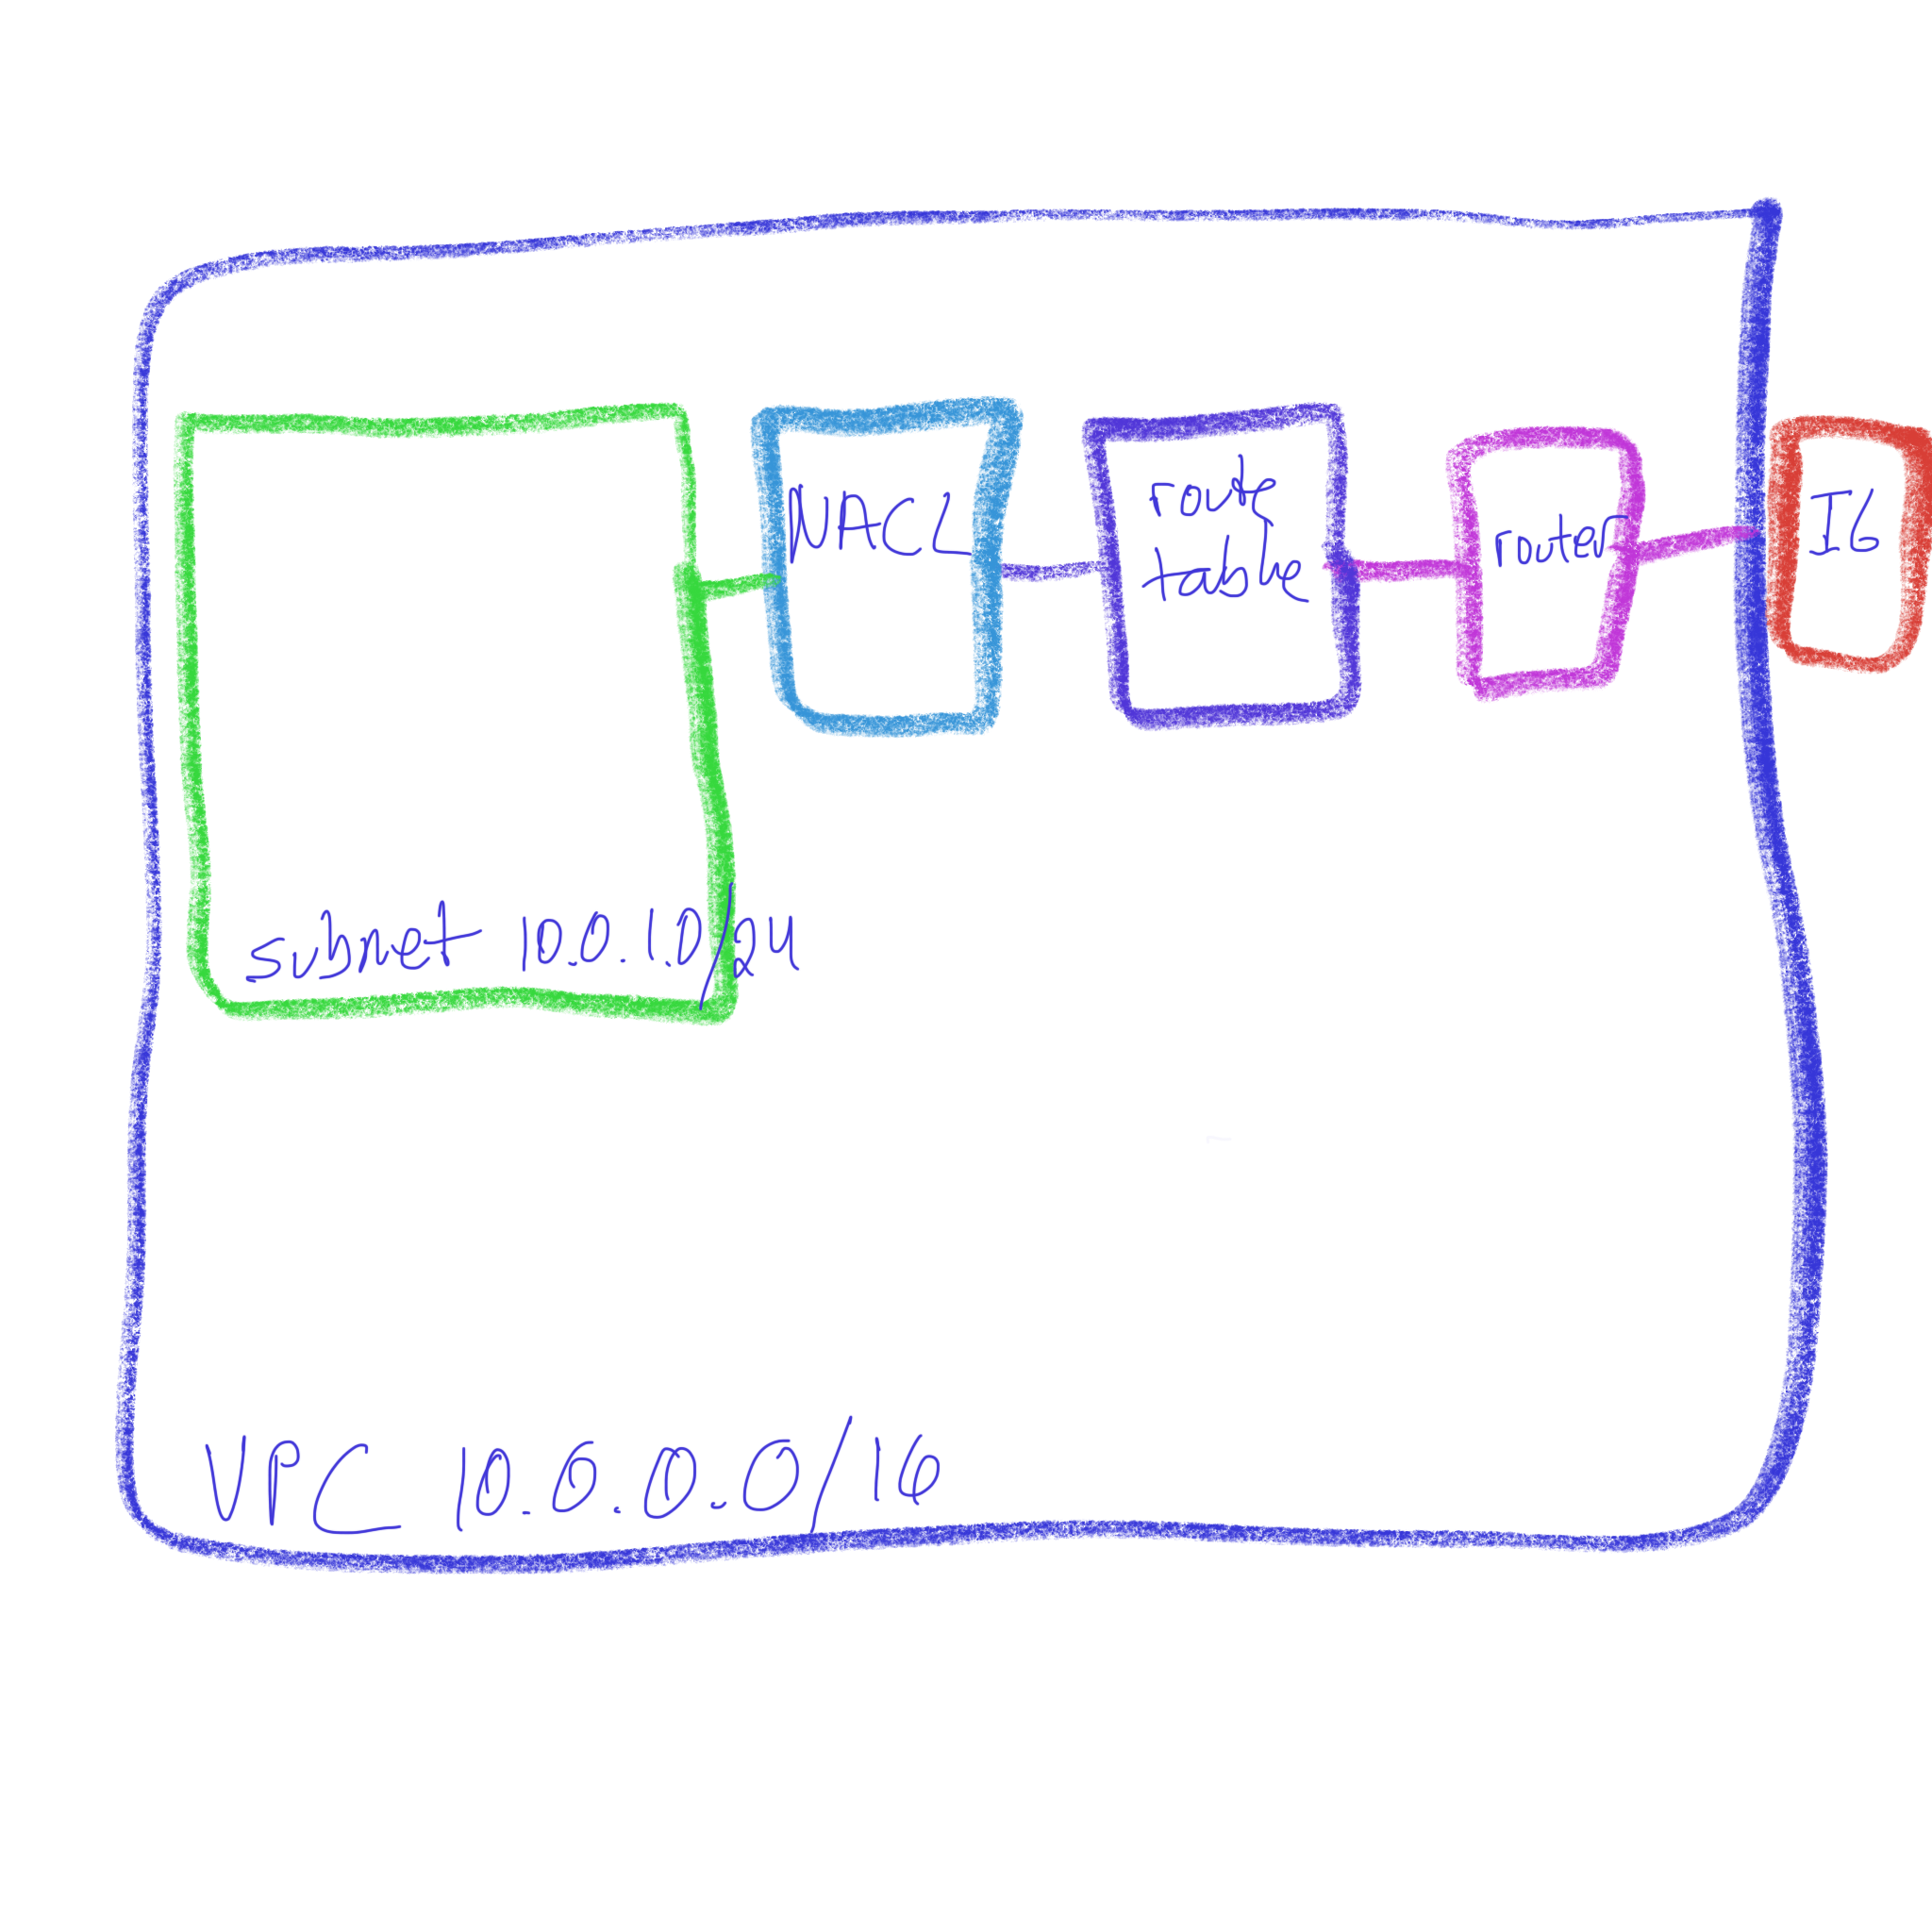 NACL
route
table
router
IG
subnet 10.0.1.0/24
VPC 10.0.0.0/16